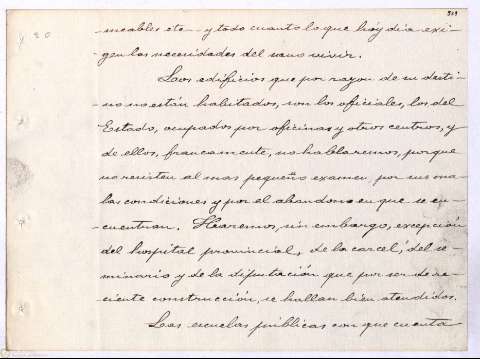 -meables etc- y todo cuanto lo que hoy dia exi-
gen las necesidades del sano vivir.
Los edificios que por razon de su desti-
-no no están habitados, son los oficiales, los del
Estado, ocupados por oficinas y otros centros, y
de ellos, francamente, no hablaremos, porque
no resisten al mas pequeño examen por sus ma-
las condiciones y por el abandono en que se en-
cuentran. Haremos, sin embargo, excepción
del hospital provincial, de la carcel, del se-
minario y de la diputación que por ser de re-
ciente construcción, se hallan bien atendidos.
Las escuelas públicas con que cuenta